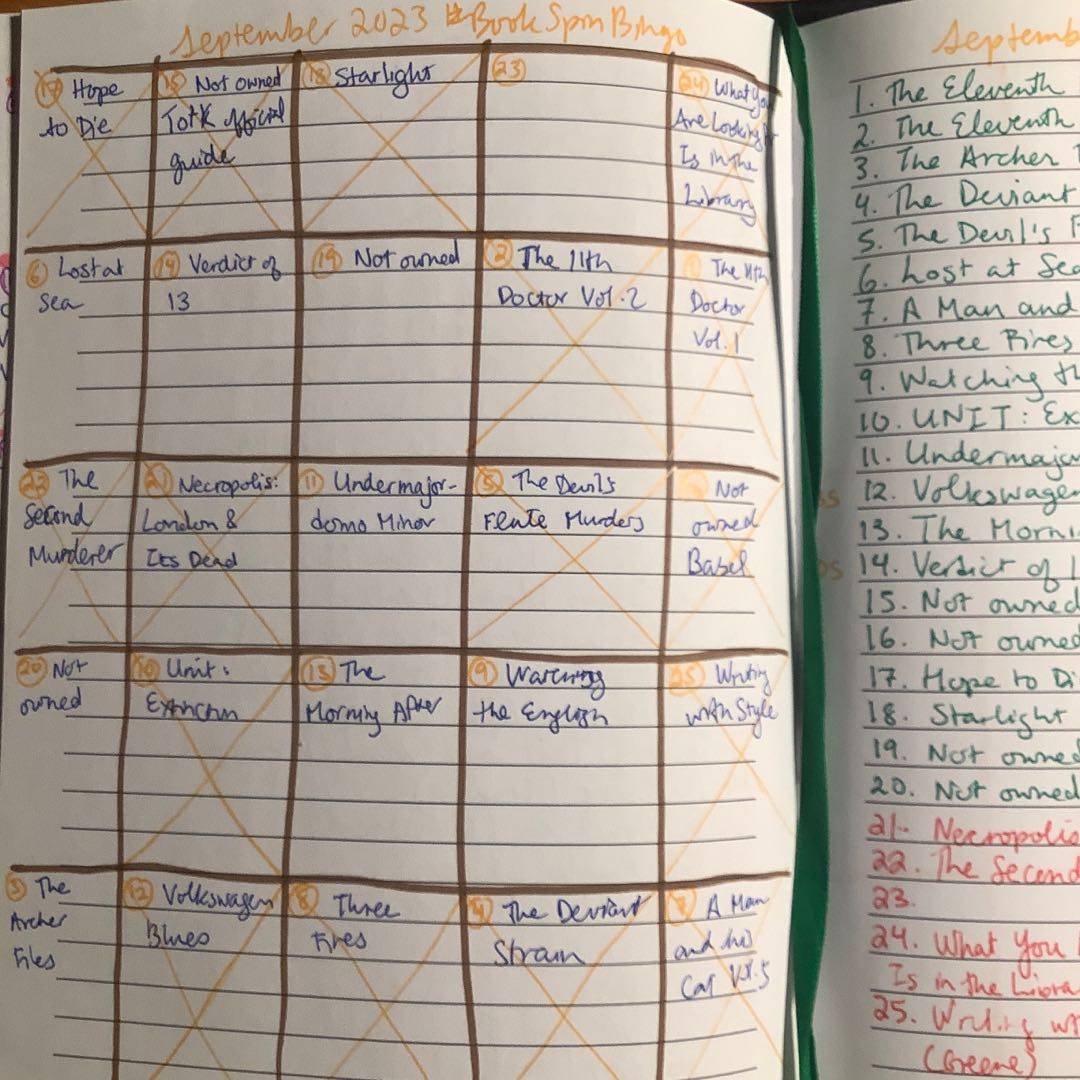 September 2023 Book Spin Bingo
17 Hope
to Die
15 Not owned
TotK official
guide
18 Starlight
23
24 What You
Are Looking for
Is in the
Library
6 Lost at
Sea
14 Verdict of
13
19 Not owned
2 The 11th
Doctor Vol. 2
1 The 11th
Doctor
Vol. 1
22 The
Second
Murderer
21 Necropolis:
London &
Its Dead
11 Undermajor-
domo Minor
5 The Devil's
Flute Murders
Not
owned
Babel
20 Not
owned
10 Unit:
Extinction
13 The
Morning After
9 Watching
the English
25 Writing
with Style
3 The
Archer
Files
12 Volkswagen
Blues
8 Three
Fires
4 The Deviant
Strain
7 A Man
and his
Cat Vol. 5
Septemb
1. The Eleventh
2. The Eleventh
3. The Archer
4. The Deviant
5. The Devil's
6. Lost at Sea
7. A Man and
8. Three Fires
9. Watching th
10. UNIT: Ex
11. Undermajor
12. Volkswagen
13. The Morni
14. Verdict of 1
15. Not owned
16. Not owned
17. Hope to Di
18. Starlight
19. Not owned
20. Not owned
21. Necropolis
22. The Second
23.
24. What You
Is in the Libra
25. Writing w
(Greene)